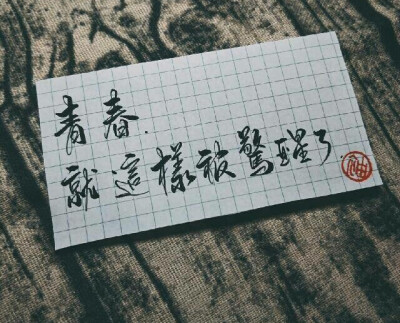 青春.
就這樣被驚醒了